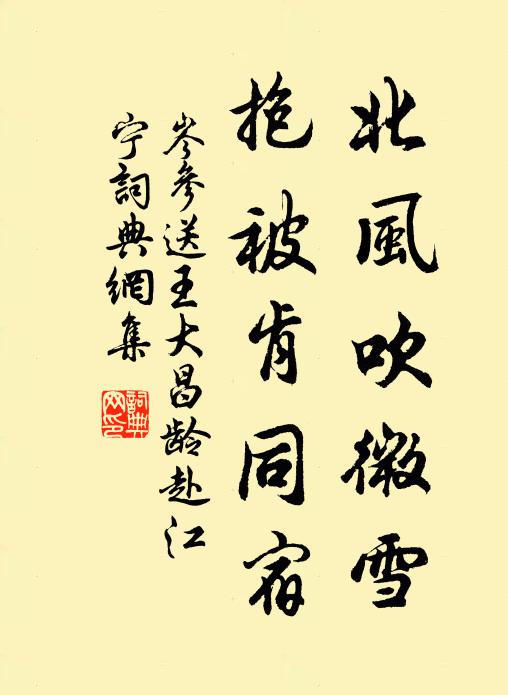 北風吹微雪
抱被肯同宿
岑參送王大昌龄赴江
宁詞典網集
詞典网印